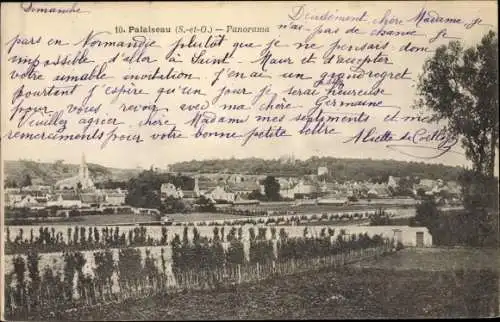 Dimanche
10. Palaiseau (S.-et-O.) - Panorama
Décidément, chère Madame, je
pars en Normandie plutôt que je ne pensais donc
n'ai pas de chance
impossible d'aller à Saint Maur et d'accepter
votre aimable invitation, j'en ai un gros regret
pourtant j'espère qu'un jour je serai heureuse
pour vous revoir, avec ma chère Germaine
Veuillez agréer chère Madame mes sentiments et mes
remerciements pour votre bonne petite lettre